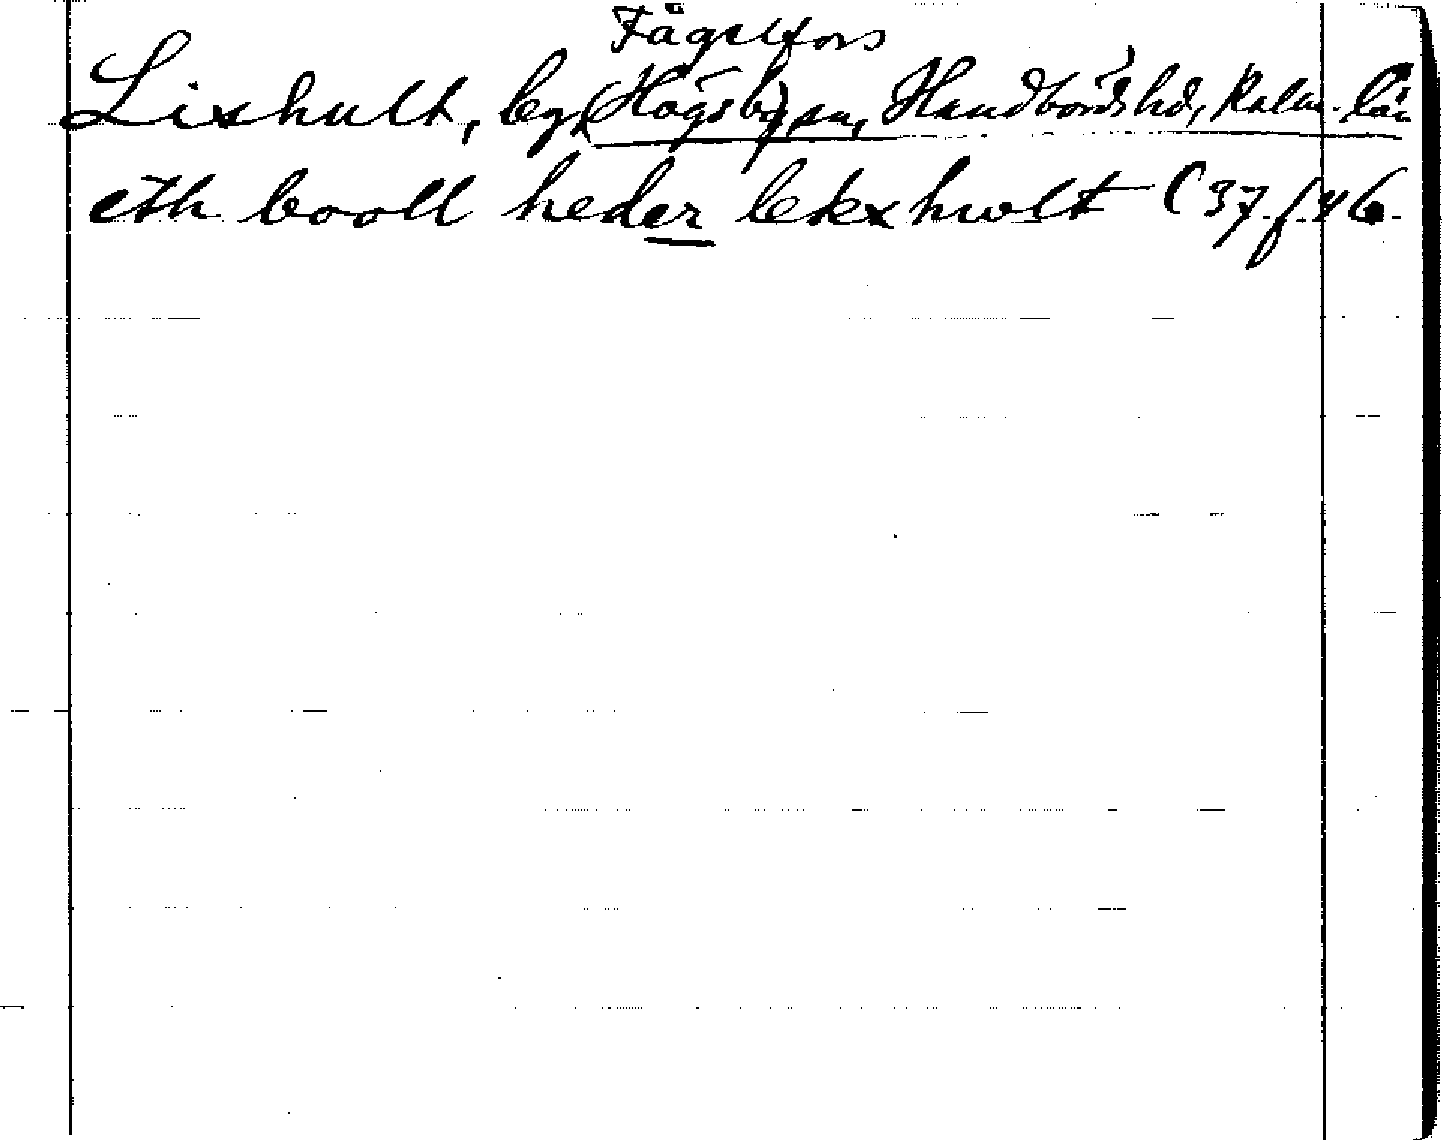 Fågelfors
Lixhult, by, (Högsby) sn, Handbörds hd, Kalm. län
eth booll heder lekxhwlt (37 f. 46.